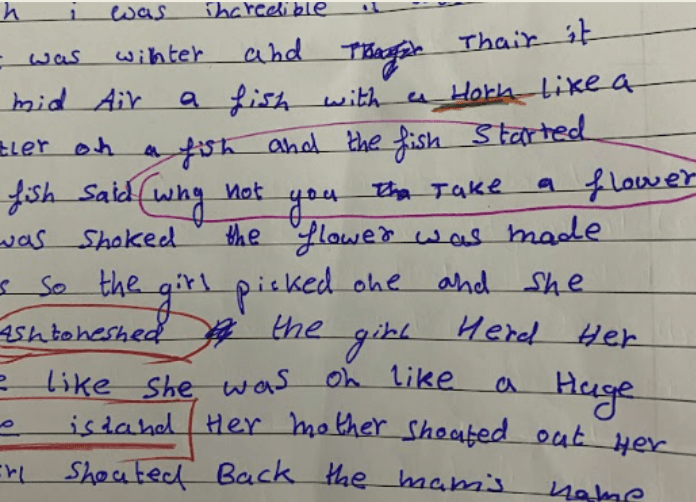 h i was incredible
was winter and Thair it
mid Air a fish with a Horn like a
tler on a fish and the fish Started
fish Said why not you Take a flower
was Shoked the flower was made
s so the girl picked one and she
Ashtoneshed the girl Herd Her
e like She was on like a Huge
e island Her mother Shoated out Her
irl Shoated Back the mam's name